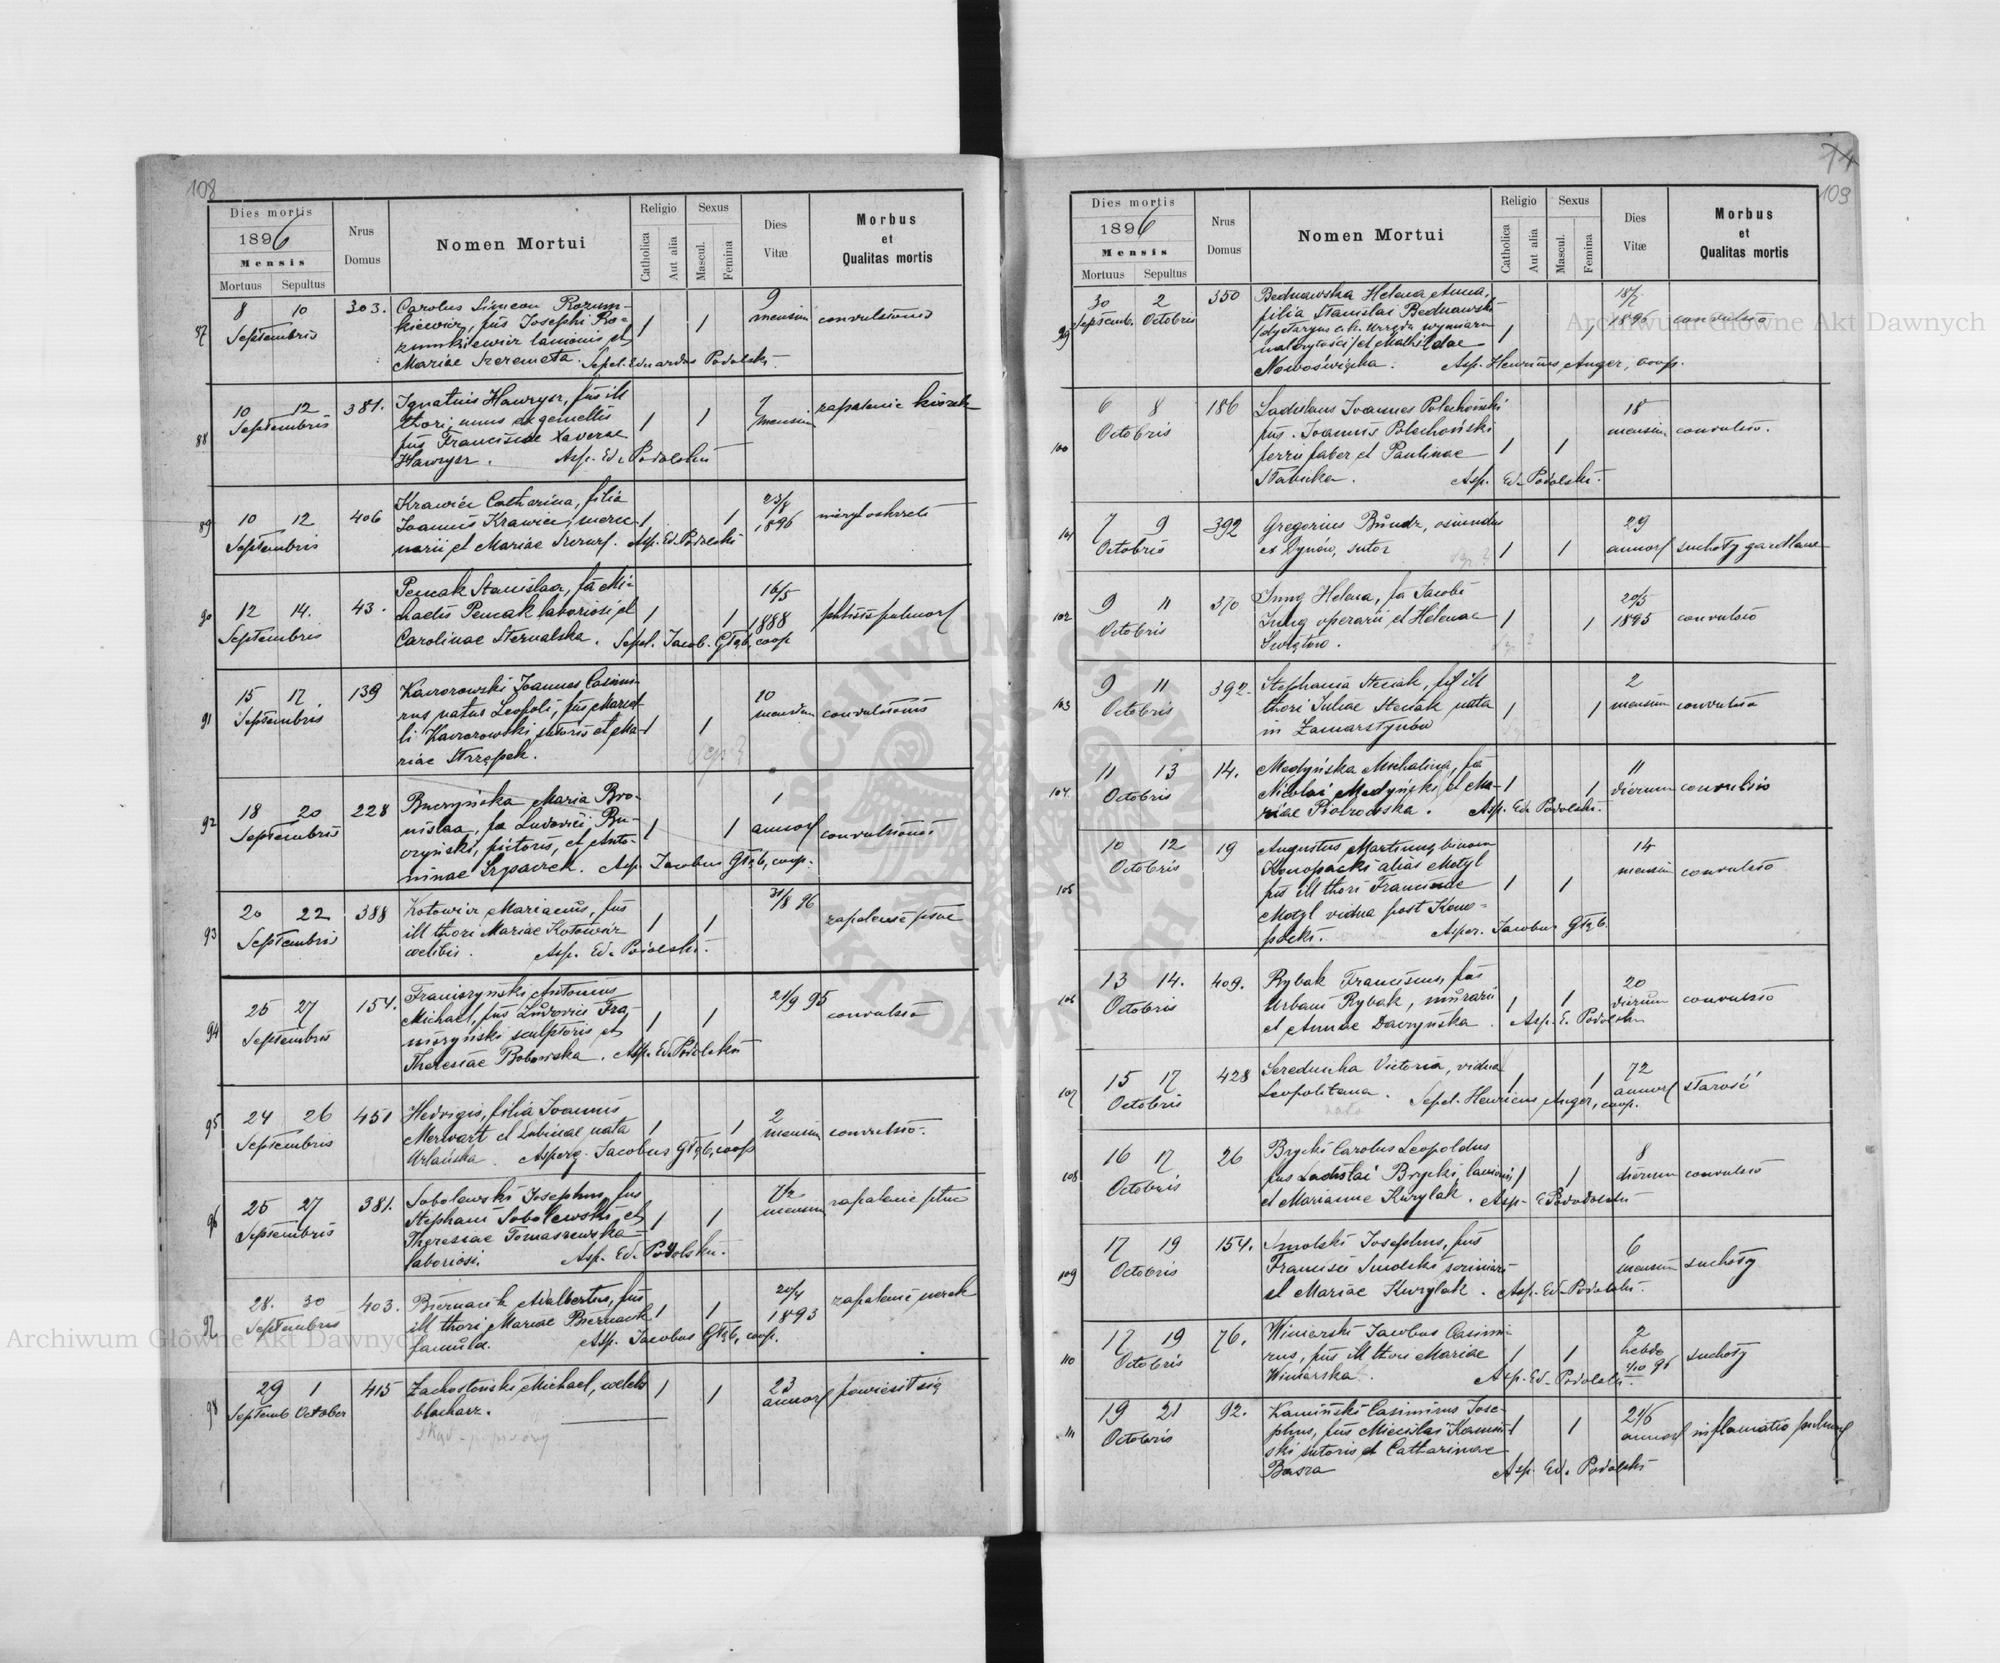 108
Dies mortis
1896
Mensis
Mortuus Sepultus
Nrus
Domus
Nomen Mortui
Religio
Catholica
Aut alia
Sexus
Mascul.
Femina
Dies
Vitæ
Morbus
et
Qualitas mortis
87
8 10
Septembris
303.
Carolus Simeon Rozum-
kiewicz, fus Josephi Ro-
zumkiewicz lanionis et
Mariae Szeremeta. Sepel. Eduardus Podolski.
1 1
9
mensium
convulsiones
88
10 12
Septembris
381.
Ignatius Hawrysz, fus ill
thori, unus ex gemellis
fus Franciscae Xaverae
Hawrysz. Asp. Ed. Podolski
1 1
7
mensium
zapalenie kiszek
89
10 12
Septembris
406
Krawiec Catharina, filia
Joannis Krawiec, merce
narii et Mariae Asp. Ed. Podolski
1 1
23/8
1896
90
12 14.
Septembris
43.
Pencak Stanislaa, fa Mi-
chaelis Pencak laboriosi et
Carolinae Sternalska. Sepel. Jacob. Głąb, coop
1 1
16/5
1888
phtisis pulmon
91
15 17
Septembris
139
Kaworowski Joannes Casimi
rus natus Leopoli, fus Marcel-
li Kaworowski sutoris et Ma-
riae Strzępek.
1 1
10
mensium
convulsiones
92
18 20
Septembris
228
Buczyńska Maria Bro-
nislaa, fa Ludovici Bu-
czyński, pictoris, et Anto-
ninae Szpaczek. Asp. Jacobus Głąb, coop.
1 1
1
annor
convulsiones
93
20 22
Septembris
388
Kotowicz Marianus, fus
ill thori Mariae Kotowicz
coelibis. Asp. Ed. Podolski.
1 1
31/8 96
zapalenie płuc
94
25 27
Septembris
154.
Franiczyński Antonius
Michael, fus Ludovici Fra-
niczyński sculptoris et
Theresiae Bobowska. Asp. Ed. Podolski
1 1
21/9 95
convulsio
95
24 26
Septembris
451
Hedvigis, filia Joannis
Merwart et Sabinae nata
Urlańska. Asperg. Jacobus Głąb, coop
1 1
2
mensium
convulsio.
96
25 27
Septembris
381.
Sobolewski Josephus, fus
Stephani Sobolewski et
Theresiae Tomaszewska
laboriosi. Asp. Ed. Podolski.
1 1
7 1/2
mensium
zapalenie płuc
97
28. 30
Septembris
403.
Biernacik Adalbertus, fus
ill thori Mariae Biernacik
famula. Asp. Jacobus Głąb, coop.
1 1
20/4
1893
zapalenie nerek
98
29 1
Septemb. October
415
Zachostoński Michael, coelebs
blacharz.
1 1
23
annor
powiesił się
109
Dies mortis
1896
Mensis
Mortuus Sepultus
Nrus
Domus
Nomen Mortui
Religio
Catholica
Aut alia
Sexus
Mascul.
Femina
Dies
Vitæ
Morbus
et
Qualitas mortis
99
30 2
Septemb. Octobris
350
Bednawska Helena Anna,
filia Stanislai Bednawski
dyetaryus c.k. urzędu wymiaru
należytości et Mathildae
Nowoświęska. Asp. Henricus Anger, coop.
1 1
18/7
1896
convulsio
100
6 8
Octobris
186
Ladislaus Joannes Polechoński
fus. Joannis Polechoński
ferri faber et Paulinae
Stanicka. Asp. Ed. Podolski.
1 1
18
mensium
convulsio.
101
7 9
Octobris
392
Gregorius Bundz, oriundus
ex Dynów, sutor
1 1
29
annor
suchoty gardlane
102
9 11
Octobris
370
Jung Helena, fa Jacobi
Jung operarii et Helenae
Swiątow.
1 1
20/5
1895
convulsio
103
9 11
Octobris
392.
Stephania Steciak, fil ill
thori Juliae Steciak nata
in Zamarstynów
1 1
2
mensium
convulsio
104
11 13
Octobris
14.
Medyńska Michalina, fa
Nicolai Medyński et Ma-
riae Piotrowska. Asp. Ed. Podolski.
1 1
11
dierum
convulsio
105
10 12
Octobris
19
Augustus Martinus binom
Konopacki alias Motyl
fus ill thori Franciscae
Motyl vidua post Kono-
packi. Asper. Jacobus Głąb.
1 1
14
mensium
convulsio
106
13 14.
Octobris
409.
Rybak Franciscus, fus
Urbani Rybak, murarii
et Annae Daczyńska. Asp. E. Podolski
1 1
20
dierum
convulsio
107
15 17
Octobris
428
Serednicka Victoria, vidua
Leopolitana. Sepel. Henricus Anger, coop.
1 1
72
annor
starość
108
16 17
Octobris
26
Brycki Carolus Leopoldus
fus Ladislai Brycki, lanionis
et Marianne Kurylak. Asp. E Podolski
1 1
8
dierum
convulsio
109
17 19
Octobris
154.
Smolski Josephus, fus
Francisci Smolski scriniarii
et Mariae Kurylak. Asp. Ed. Podolski.
6
mensium
suchoty
110
17 19
Octobris
76.
Winiarski Jacobus Casimi
rus, fus ill thori Mariae
Winiarska. Asp. Ed. Podolski.
1 1
2
hebdo
4/10 96
suchoty
111
19 21
Octobris
92.
Kamiński Casimirus Jose-
phus, fus Miecislai Kamiń-
ski sutoris et Catharinae
Basza Asp. Ed. Podolski
1 1
2 1/6
annor
inflamatio pulmon
Archiwum Główne Akt Dawnych
Archiwum Główne Akt Dawnych
ARCHIWUM GŁÓWNE AKT DAWNYCH